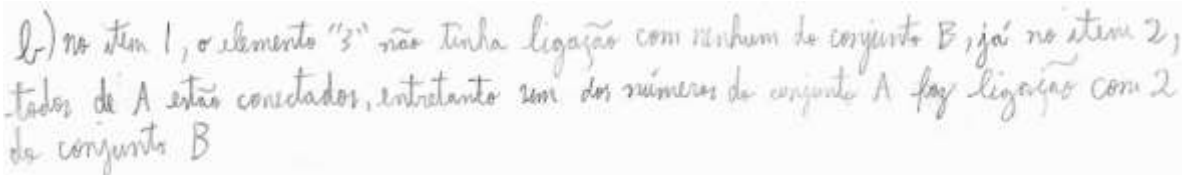 b) no item 1, o elemento "3" não tinha ligação com nenhum do conjunto B, já no item 2,
todos de A estão conectados, entretanto um dos números do conjunto A faz ligação com 2
do conjunto B